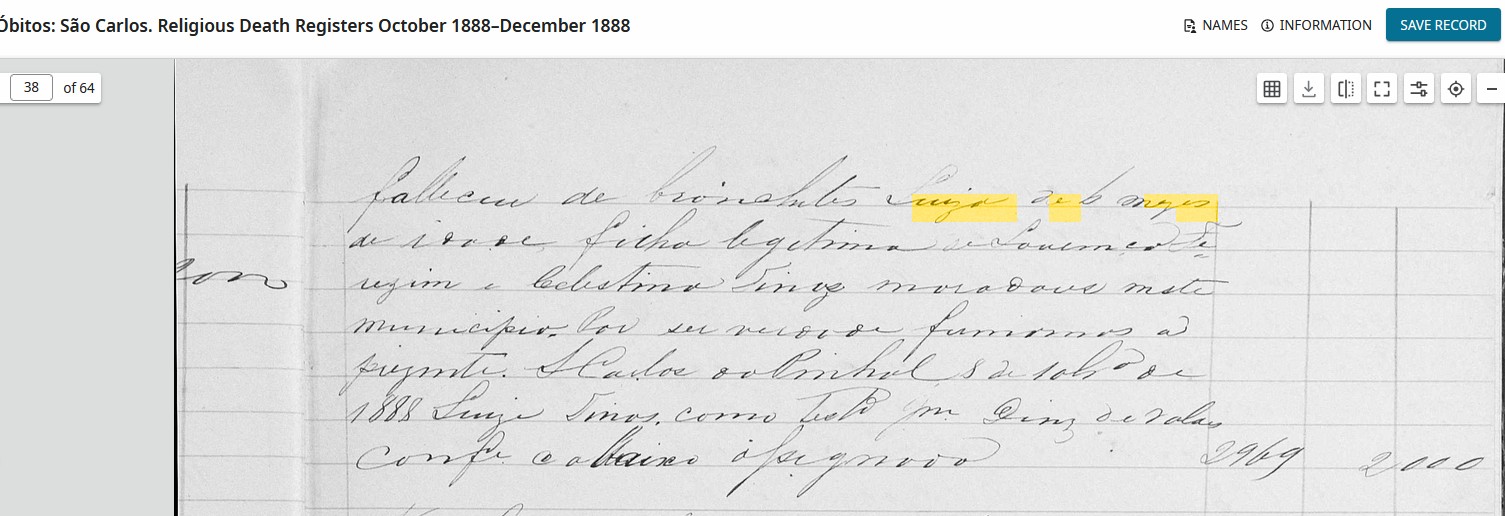 Óbitos: São Carlos. Religious Death Registers October 1888–December 1888
NAMES
INFORMATION
SAVE RECORD
38 of 64
falleceu de bronchites Luiza de 6 mezes
de idade, filha legitima de
e Celestina moradores neste
municipio. Por ser verdade firmamos a
prezente. S Carlos do Pinhal 8 de 10brº de
1888 Luiz como Testº
Confe o abaixo assignado 2969 2000